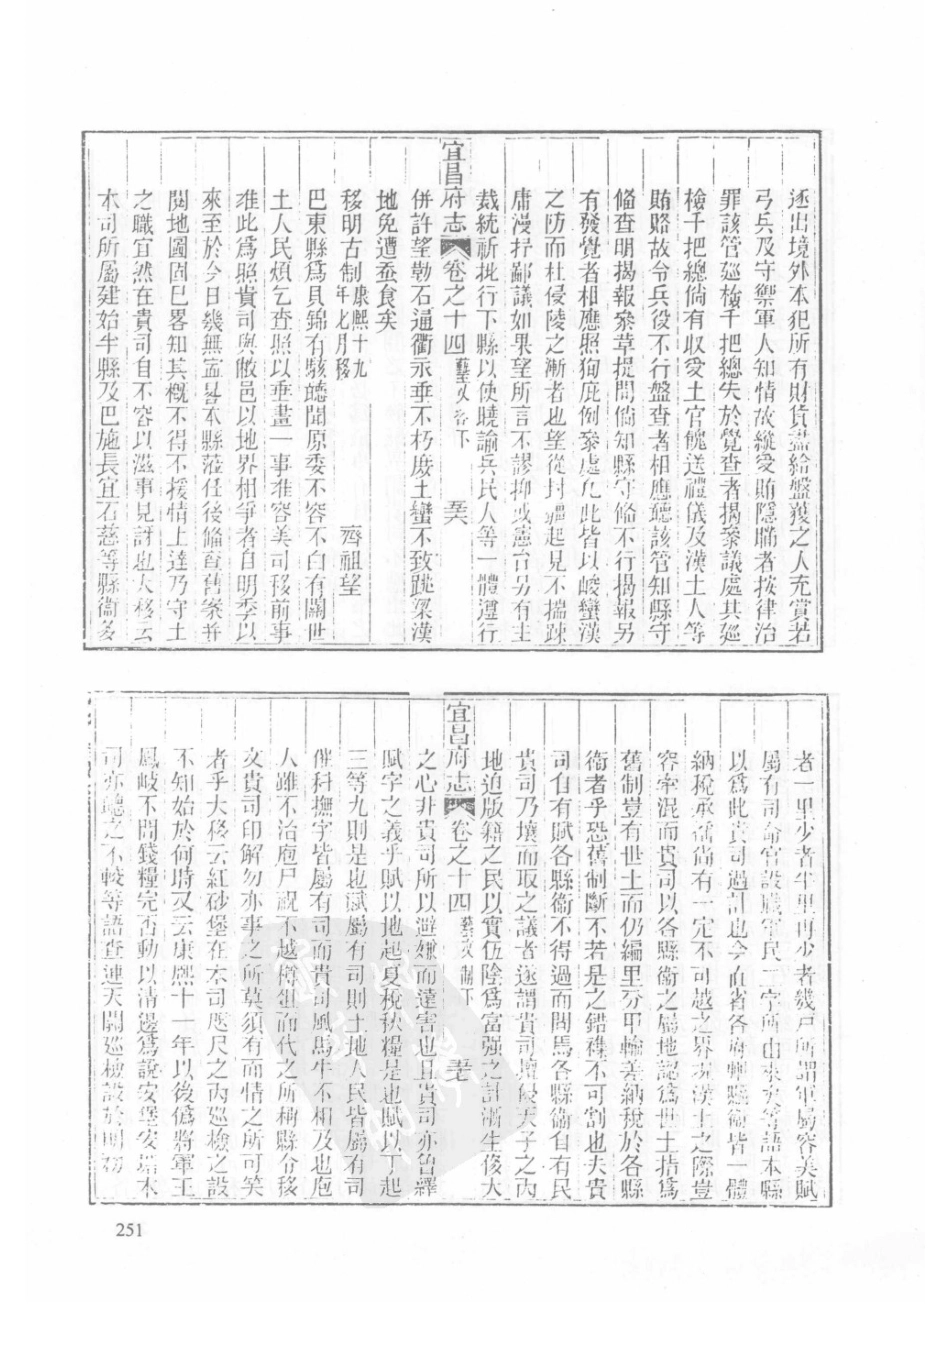 逐出境外本犯所有財貨盡給盤獲之人充賞若
弓兵及守禦軍人知情故縱受賄隱瞞者按律治
罪該管巡檢千把總失於覺查者揭參議處其巡
檢千把總倘有收受土官餽送禮儀及漢土人等
賄賂故令兵役不行盤查者相應聽該管知縣守
備查明揭報參革提問倘知縣守備不行揭報另
有發覺者相應照狥庇例參處凡此皆以峻蠻漢
之防而杜侵陵之漸者也望從封疆起見不揣踈
庸漫抒鄙議如果望所言不謬抑或憲台另有主
裁統祈批行下縣以便曉諭兵民人等一體遵行
宜昌府志 卷之十四 藝文 咨下
併許望勒石通衢永垂不朽庻土蠻不致跳梁漢
地免遭蚕食矣
移明古制 康熙十九年七月移 齊祖望
巴東縣爲貝錦有駭聽聞原委不容不白有關世
土人民煩乞查照以垂畫一事准容美司移前事
准此爲照貴司與敝邑以地界相爭者自明季以
來至於今日幾無寧晷本縣蒞任後備查舊案并
閱地圖固已畧知其概不得不援情上達乃守土
之職宜然在貴司自不容以滋事見訝也大移云
本司所屬建始半縣及巴施長宜石慈等縣衞多
者一里少者半里再少者幾戸所謂軍屬容美賦
屬有司命官設職軍民二字所由來矣等語本縣
以爲此貴司過計也今直省各府州縣衞皆一體
納稅承徭尚有一定不可越之界況漢土之際豈
容牽混而貴司以各縣衞之屬地認爲世土指爲
舊制豈有世土而仍編里分甲輸差納稅於各縣
衞者乎恐舊制斷不若是之錯襍不可割也夫貴
司自有賦各縣衞不得過而問焉各縣衞自有民
貴司乃壤而取之議者遂謂貴司擅侵天子之內
地迫版籍之民以實伍陰爲富强之計漸生侈大
宜昌府志 卷之十四 藝文
之心非貴司所以避嫌而遠害也且貴司亦曾繹
賦字之義乎賦以地起夏稅秋糧是也賦以丁起
三等九則是也賦屬有司則土地人民皆屬有司
催科撫字皆屬有司而貴司風馬牛不相及也庖
人雖不治庖尸祝不越樽俎而代之所稱縣介移
文貴司印解勿亦事之所莫須有而情之所可笑
者乎大移云紅砂堡在本司咫尺之內巡檢之設
不知始於何時又云康熙十一年以後僞將軍王
鳳岐不問錢糧完否動以清邊爲說安堡安塘本
司亦聽之不較等語查連天關巡檢設於明初
251